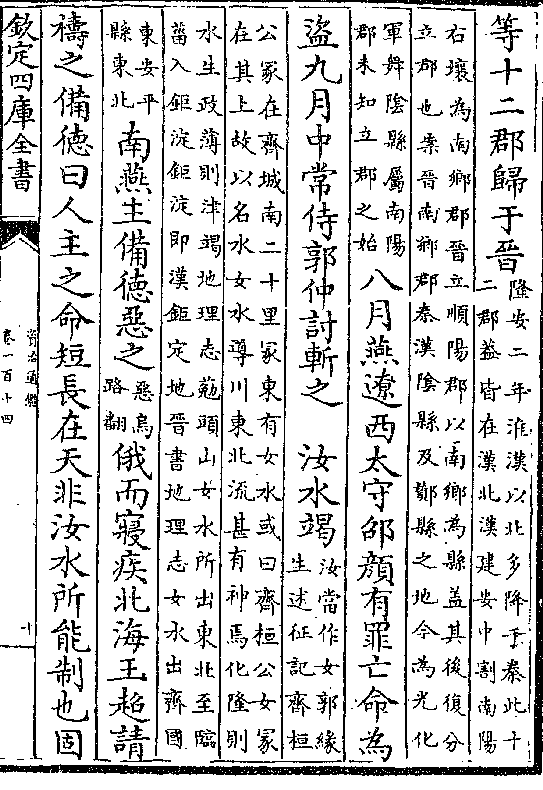 等十二郡歸于晉隆安二年淮漢以北多降于秦此十
二郡蓋皆在漢北漢建安中割南陽
右壤為南鄉郡晉立順陽郡以南鄉為縣蓋其後復分
立郡也桉晉南鄉郡秦漢隂縣及酇縣之地今為光化
軍舞隂縣屬南陽
郡未知立郡之始八月燕遼西太守邵顔有罪亡命為
盜九月中常侍郭仲討斬之　汝水竭汝當作女郭緣
生述征記齊桓
公冡在齊城南二十里冡東有女水或曰齊桓公女冡
在其上故以名水女水導川東北流甚有神焉化隆則
水生政薄則津竭地理志葂頭山女水所出東北至臨
菑入鉅淀鉅淀即漢鉅定地晉書地理志女水出齊國
東安平
縣東北南燕主備徳惡之惡烏
路翻俄而寢疾北海王超請
禱之備徳曰人主之命短長在天非汝水所能制也固
欽定四庫全書
資治通鑑
卷一百十四
十